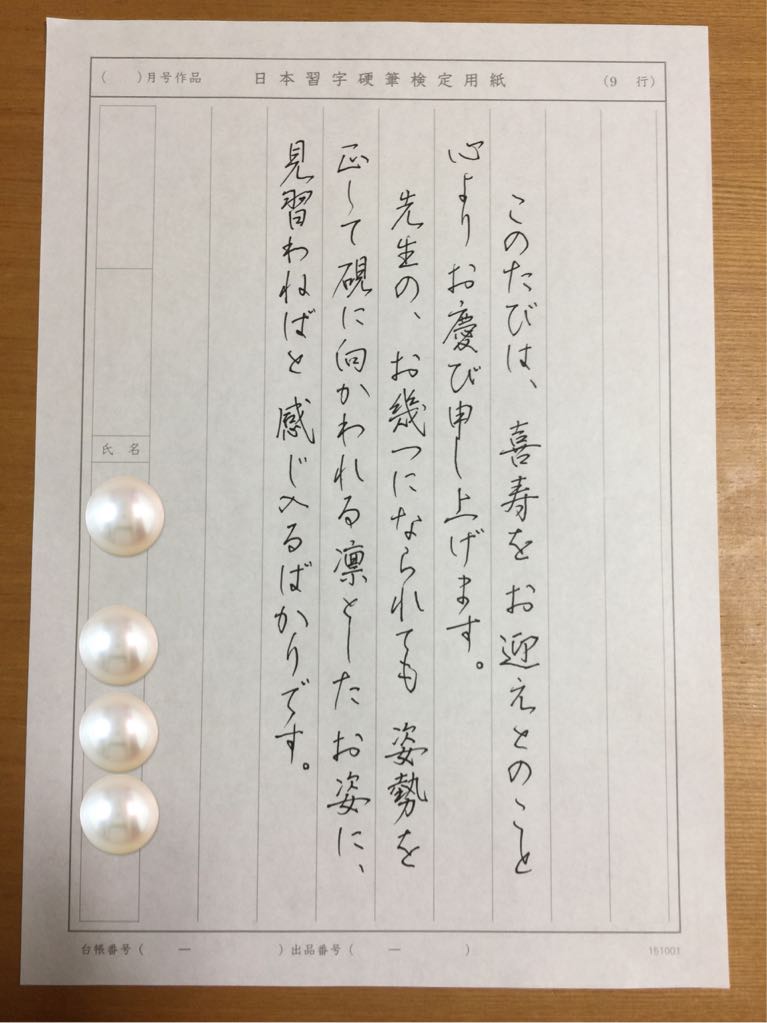 ( )月号作品 日本習字硬筆検定用紙 (9 行)
このたびは、喜寿をお迎えとのこと
心よりお慶び申し上げます。
先生の、お幾つになられても姿勢を
正して硯に向かわれる凛としたお姿に、
見習わねばと感じ入るばかりです。
氏名
台帳番号( ー )出品番号( ー )
161001